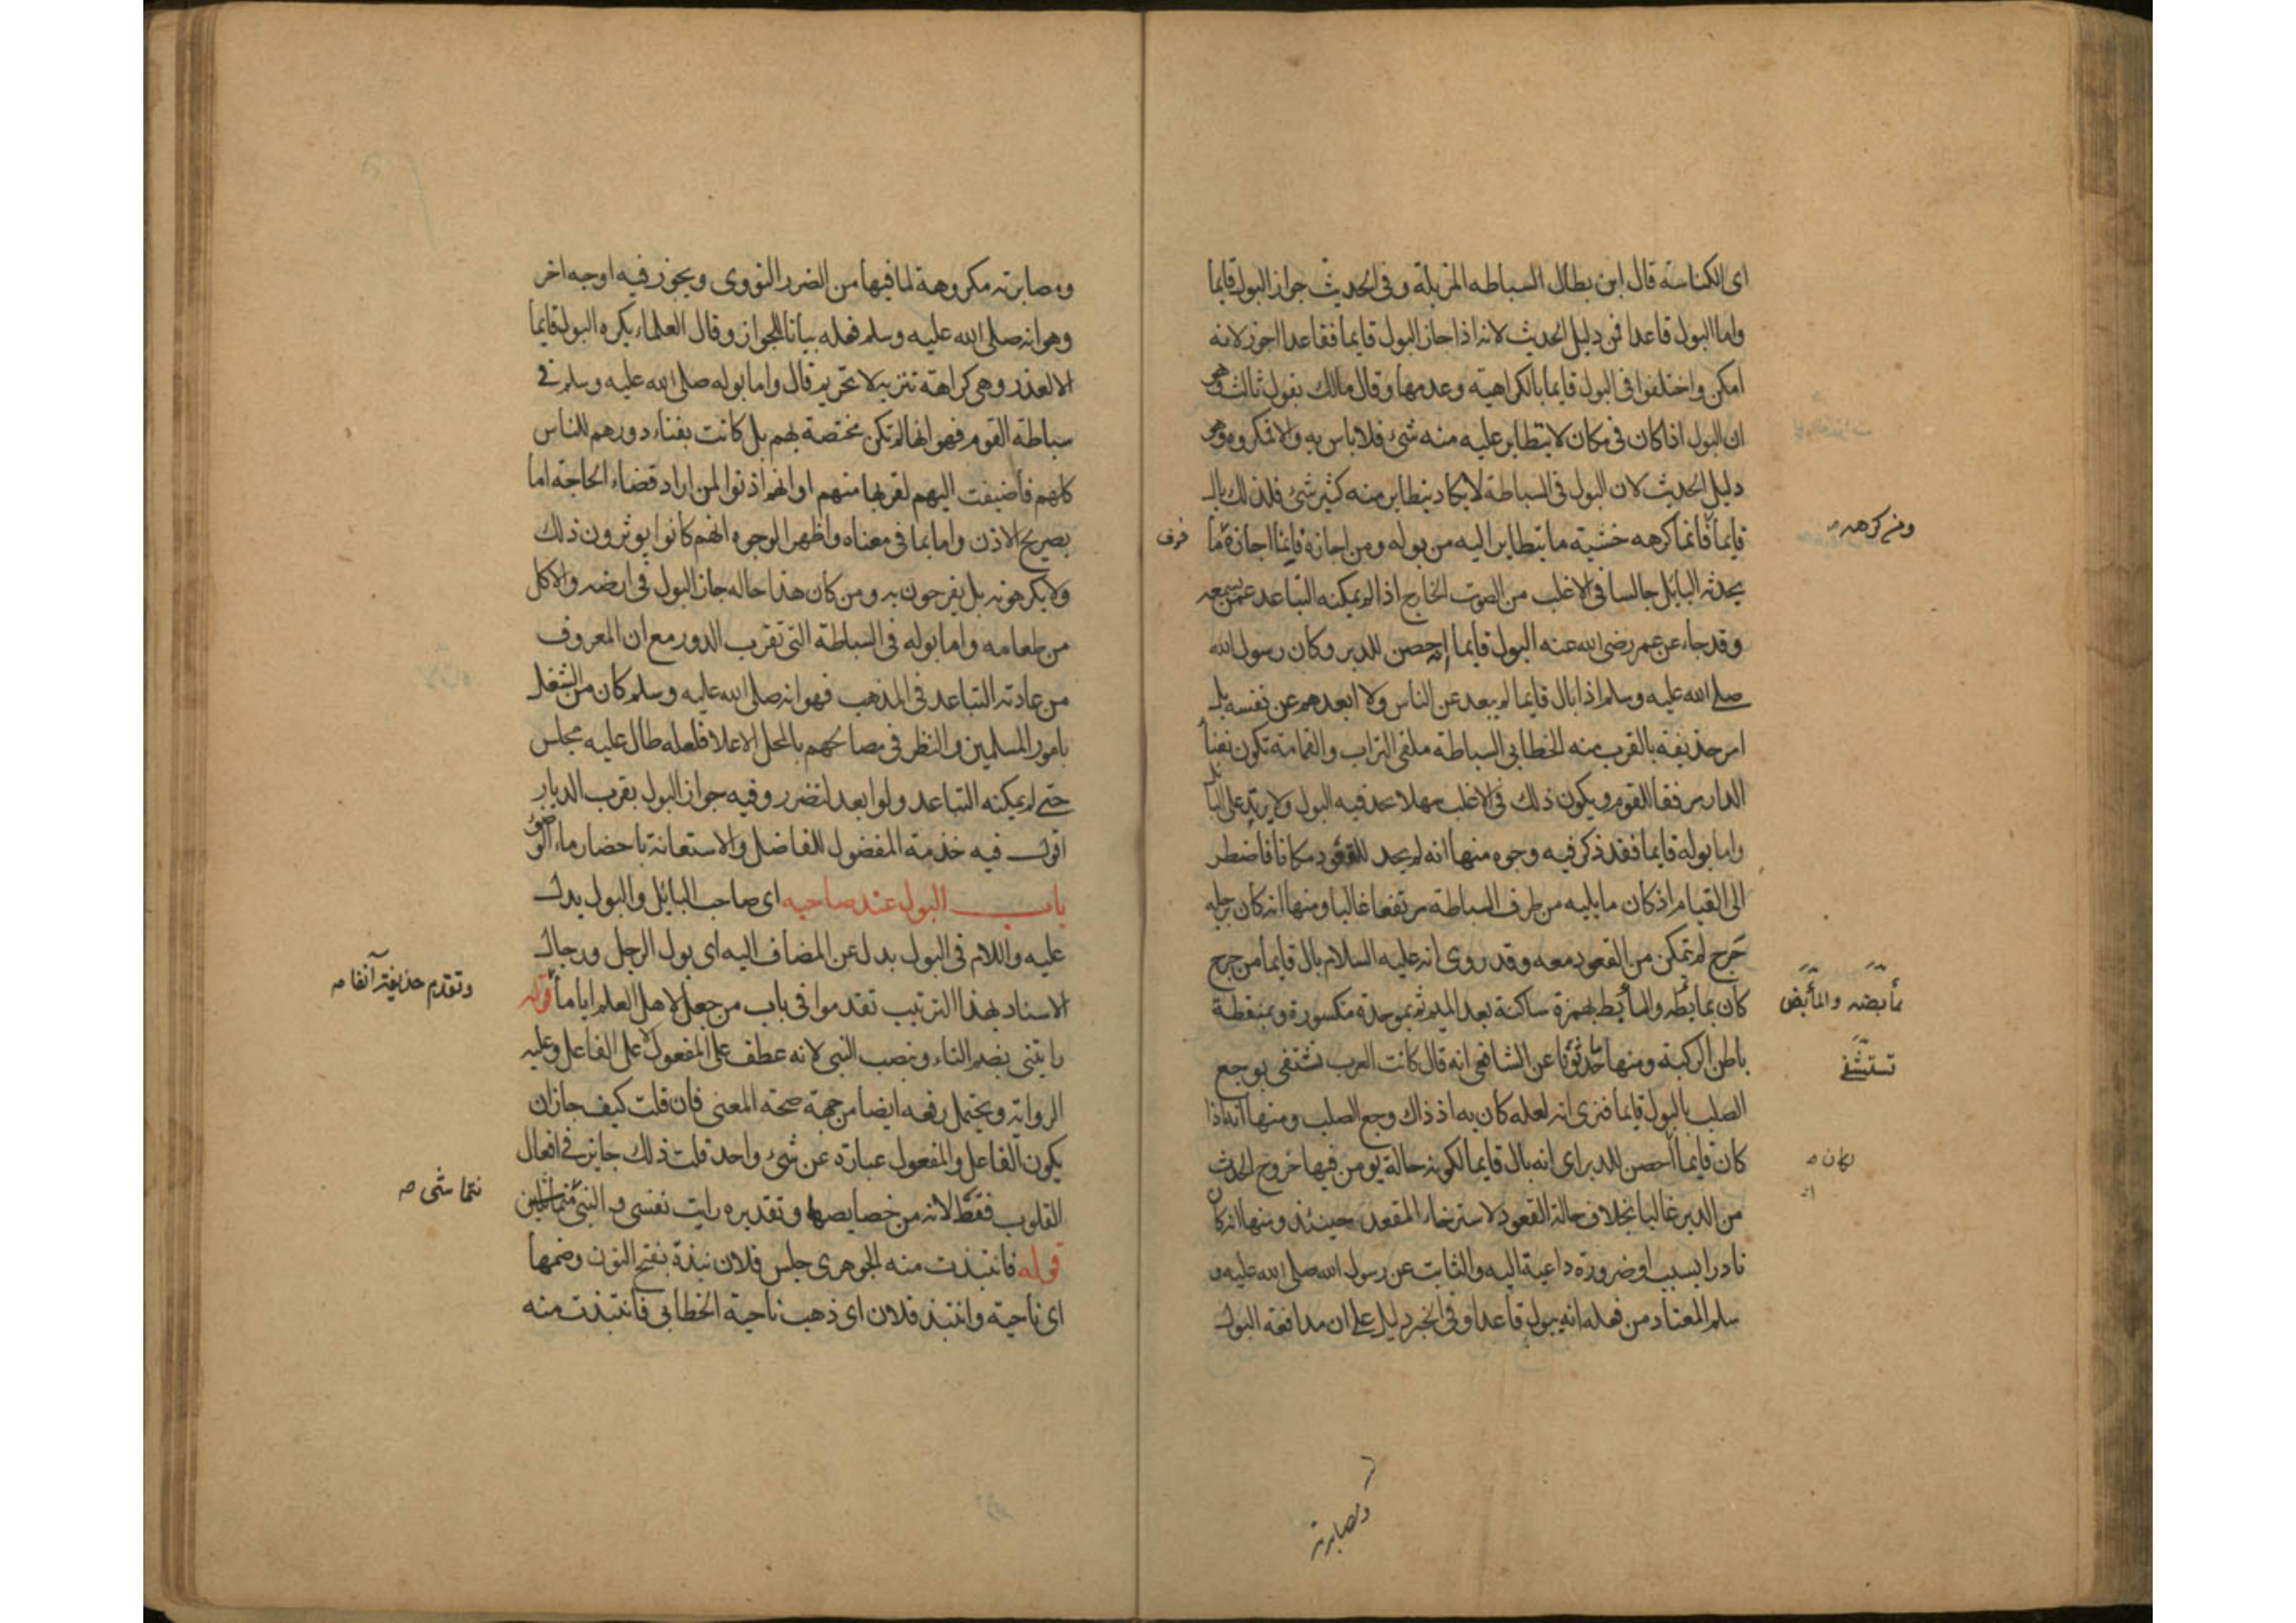 اى الكناسة قال ابن بطال السباطه المزبلة وفى الحديث جواز البول قايما
واما البول قاعدا فمن دليل الحديث لانه اذا جاز البول قايما فقاعدا اجوز لانه
امكن واختلفوا فى البول قايما بالكراهية وعدمها وقال مالك بقول ثالث وهو
ان البول اذا كان فى مكان لا يتطاير عليه منه شئ فلا باس به والا فمكروه وهو
دليل الحديث لان البول فى السباطة لا يكاد يتطاير منه كثير شئ فلذلك بال
قايما فانما كرهه خشية ما يتطاير اليه من بوله ومن اجازه فانما اجازه لما
ومن كرهه
فرف
يحدثه البائل جالسا فى الاغلب من الصوت الخارج اذا لم يمكنه التباعد عمن يسمعه
وقد جاء عن عمر رضى الله عنه البول قايما احصن للدبر وكان رسول الله
صلى الله عليه وسلم اذا بال قايما لم يبعد عن الناس ولا ابعدهم عن نفسه بل
امر حذيفة بالقرب منه الخطابى السباطة ملقى التراب والقمامة تكون بفنا
الدار مرفقا للقوم ويكون ذلك فى الاغلب سهلا يحد فيه البول ولا يرتد على البائل
واما بوله قايما فقد ذكر فيه وجوه منها انه لم يجد للقعود مكانا فاضطر
الى القيام اذ كان ما يليه من طرف السباطة مرتفعا غالبا ومنها انه كان برجله
جرح لم يتمكن من القعود معه وقد روى انه عليه السلام بال قايما من جرح
كان بمابطه والمأبط بهمزة ساكنة بعد الميم ثم بموحدة مكسورة وبمنقطة
مأبضه والمأبض
باطن الركبة ومنها ما حدثونا عن الشافعى انه قال كانت العرب تشتفى بوجع
تستشفى
الصلب بالبول قايما فنرى انه لعله كان به اذ ذاك وجع الصلب ومنها انه اذا
كان قايما احصن للدبر اى انه بال قايما لكونه حالة يومن فيها خروج الحدث
لكان
من الدبر غالبا بخلاف حالة القعود لاسترخاء المقعد حينئذ ومنها انه كان
نادرا بسبب او ضرورة داعية اليه والثابت عن رسول الله صلى الله عليه و
سلم المعتاد من فعله انه يبول قاعدا وفى الخبر دليل على ان مدافعة البول
ومصابرته
ومصابرته مكروهة لما فيها من الضرر النووى ويجوز فيه اوجه اخر
وهو انه صلى الله عليه وسلم فعله بيانا للجواز وقال العلماء يكره البول قايما
الا لعذر وهى كراهة تنزيه لا تحريم قال واما بوله صلى الله عليه وسلم فى
سباطة القوم فهو انها لم تكن مختصة بهم بل كانت بفناء دورهم للناس
كلهم فأضيفت اليهم لقربها منهم او انهم اذنوا لمن اراد قضاء الحاجة اما
بصريح الاذن واما بما فى معناه واظهر الوجوه انهم كانوا يوثرون ذلك
ولا يكرهونه بل يفرحون به ومن كان هذا حاله جاز البول فى ارضه والاكل
من طعامه واما بوله فى السباطة التى تقرب الدور مع ان المعروف
من عادته التباعد فى المذهب فهو انه صلى الله عليه وسلم كان من الشغل
بامور المسلمين والنظر فى مصالحهم بالمحل الاعلا فلعله طال عليه مجلس
حتى لم يمكنه التباعد ولو ابعد لتضرر وفيه جواز البول بقرب الديار
اقول فيه خدمة المفضول للفاضل والاستعانة باحضار ماء الوضو
باب البول عند صاحبه اى صاحب البائل والبول يدل
عليه واللام فى البول بدل عن المضاف اليه اى بول الرجل ورجال
الاسناد بهذا الترتيب تقدموا فى باب من جعل لاهل العلم اياما قوله
وتقدم حذيفة آنفا
رايتنى بضم التاء ونصب النبى لانه عطف على المفعول لا على الفاعل وعليه
الرواية ويحتمل رفعه ايضا من جهة صحة المعنى فان قلت كيف جاز ان
يكون الفاعل والمفعول عبارة عن شئ واحد قلت ذلك جايز فى افعال
القلوب فقط لانه من خصايصها وتقديره رايت نفسى والنبى متماشيين
نتماشى
قوله فانتبذت منه الجوهرى جلس فلان نبذة بفتح النون وضمها
اى ناحية وانتبذ فلان اى ذهب ناحية الخطابى فانتبذت منه